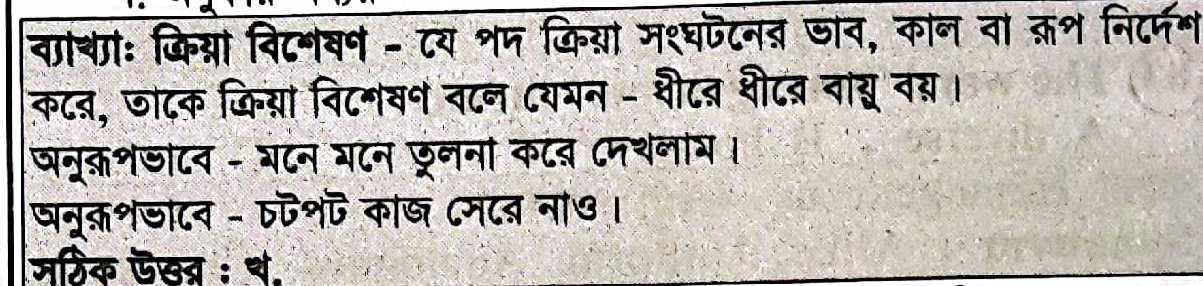 ব্যাখ্যাঃ ক্রিয়া বিশেষণ - যে পদ ক্রিয়া সংঘটনের ভাব, কাল বা রূপ নির্দেশ
করে, তাকে ক্রিয়া বিশেষণ বলে যেমন - ধীরে ধীরে বায়ু বয়।
অনুরূপভাবে - মনে মনে তুলনা করে দেখলাম।
অনুরূপভাবে - চটপট কাজ সেরে নাও।
সঠিক উত্তর : খ.